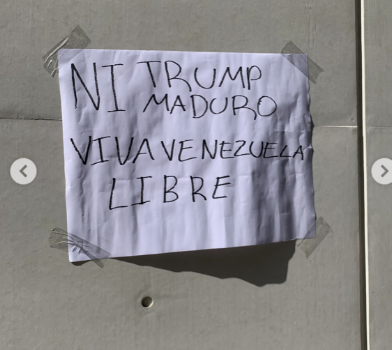 NI TRUMP
MADURO
VIVA VENEZUELA
LIBRE